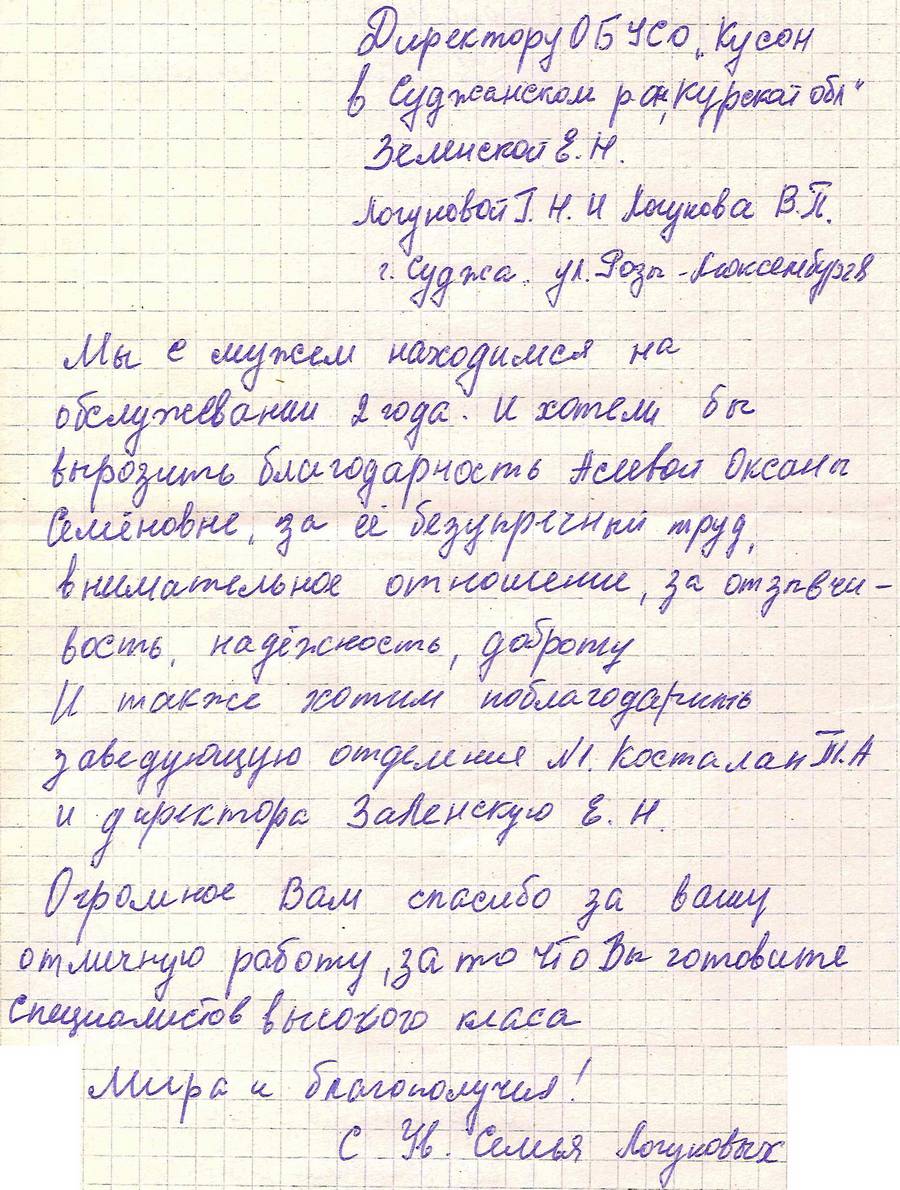 Директору ОБУСО „Кусон
в Суджанском р-он, Курской обл"
Зеленской Е. Н.
Логуновой Г. Н. и Логунова В. П.
г. Суджа. ул. Розы - Люксембург 8
Мы с мужем находимся на
обслуживании 2 года. И хотели бы
вырозить благодарность Асеевой Оксаны
Семёновне, за её безупречный труд,
внимательное отношение, за отзывчи-
вость, надёжность, доброту
И также хотим поблагодарить
заведующую отделения №1. Косталан Т. А
и директора Заленскую Е. Н.
Огромное Вам спасибо за вашу
отличную работу, за то что Вы готовите
специалистов высокого класа
Мира и благополучия!
С Ув. Семья Логуновых